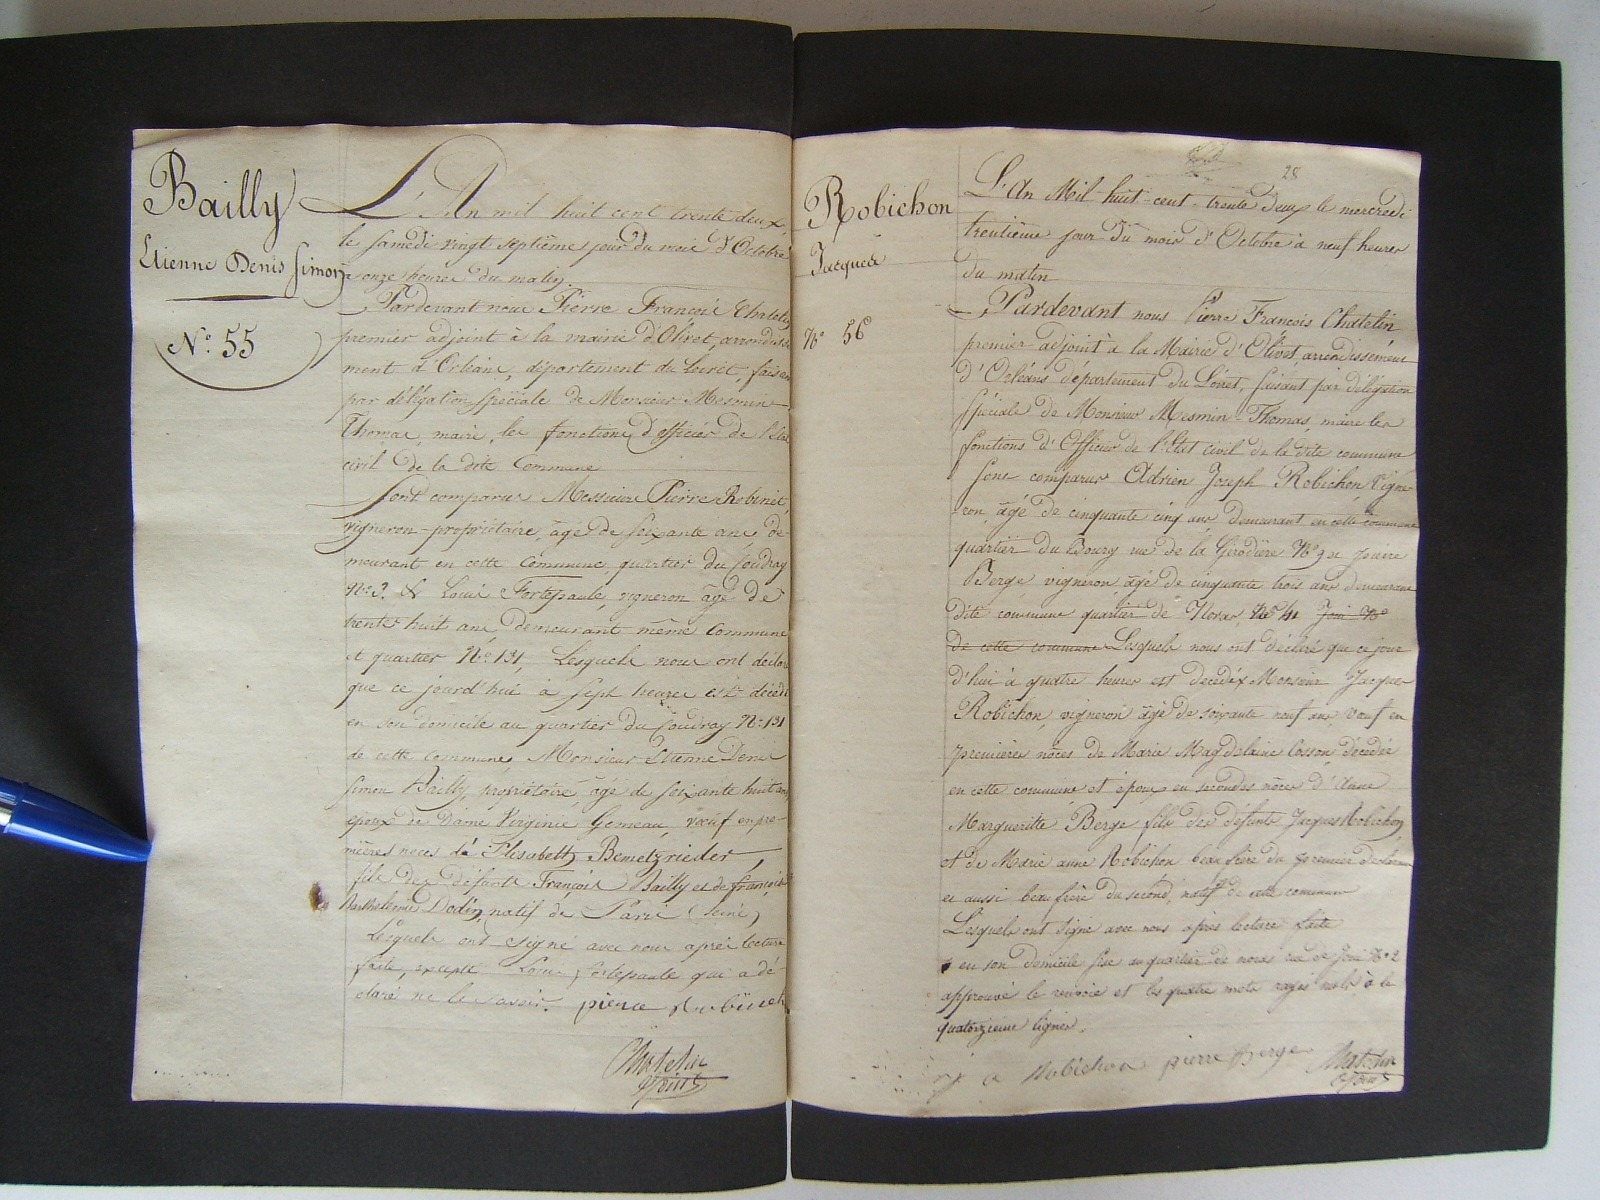 Bailly
Etienne Denis Simon
N.° 55
L'An mil huit cent trente deux,
le samedi vingt septième jour du mois d'Octobre
onze heures du matin.
Pardevant nous Pierre François Chatelin
premier adjoint à la mairie d'Olivet, arrondisse-
ment d'Orléans, département du Loiret, faisant
par délégation spéciale de Monsieur Mesmin
Thomas, maire, les fonctions d'officier de l'état
civil de la dite Commune
Sont comparus Messieurs Pierre Robinet,
vigneron-propriétaire, âgé de soixante ans, de-
meurant en cette Commune, quartier du Coudray
N.° 2. & Louis Fortepaule, vigneron âgé de
trente huit ans, demeurant même Commune
et quartier N.° 131, Lesquels nous ont déclaré
que ce jourd'hui à sept heures est décédé
en son domicile au quartier du Coudray N.° 131
de cette commune, Monsieur Etienne Denis
Simon Bailly, propriétaire, âgé de soixante huit ans,
époux de Dame Virginie Gemeau, vœuf en pre-
mières noces de Elisabeth Bemetzrieder,
fils des défunts François Bailly et de françoise
Barthelemie Dodin, natif de Paris (Seine)
Lesquels ont signé avec nous après lecture
faite, excepté Louis fortepaule qui a dé-
claré ne le savoir. pierre Robinet
Chatelin
adjoint
28
Robichon
Jacques
N.° 56
L'An Mil-huit-cent-trente deux le mercredi
trentième jour du mois d'Octobre à neuf heures
du matin
Pardevant nous Pierre François Chatelin
premier adjoint à la Mairie d'Olivet, arrondissement
d'Orléans département du Loiret, faisant par délégation
spéciale de Monsieur Mesmin-Thomas, maire les
fonctions d'Officier de l'Etat civil de la dite commune
Sont comparus Adrien Joseph Robichon vigne-
-ron, âgé de cinquante cinq ans demeurant en cette commune
quartier du Bourg rue de la Girodière N.° 9 et pierre
Berge vigneron, âgé de cinquante trois ans demeurant
dite commune quartier de Noras, N° 41 Joui N°
de cette commune Lesquels nous ont déclaré que ce jour
d'hui à quatre heures est décédé x Monsieur Jacques
Robichon, vigneron âgé de soixante neuf ans, vœuf en
premières nôces de Marie Magdelaine Cosson, décédée
en cette commune et époux en secondes nôces d'Anne
Margueritte Berge fils des défunts Jacques Robichon,
et de Marie anne Robichon beau frère du premier déclarant
et aussi beau frère du second, natif de cette commune
Lesquels ont signé avec nous après lecture faite
x en son domicile sise au quartier de noras rue de Joui N° 2
approuvé le renvoie et les quatre mots rayés nuls à la
quatorzième lignes.
j a Robichon pierre Berge Chatelin
adjoint